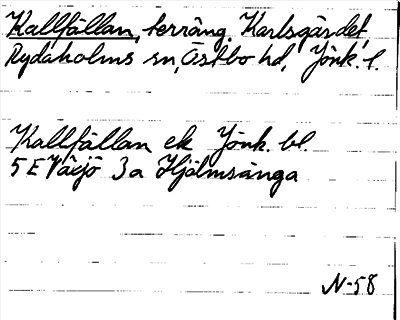 Kallfällan, terräng, Karlsgärdet,
Rydaholms sn, Östbo hd, Jönk. l.
Kallfällan ek Jönk. bl.
5 E Växjö 3a Hjälmsänga
N-58